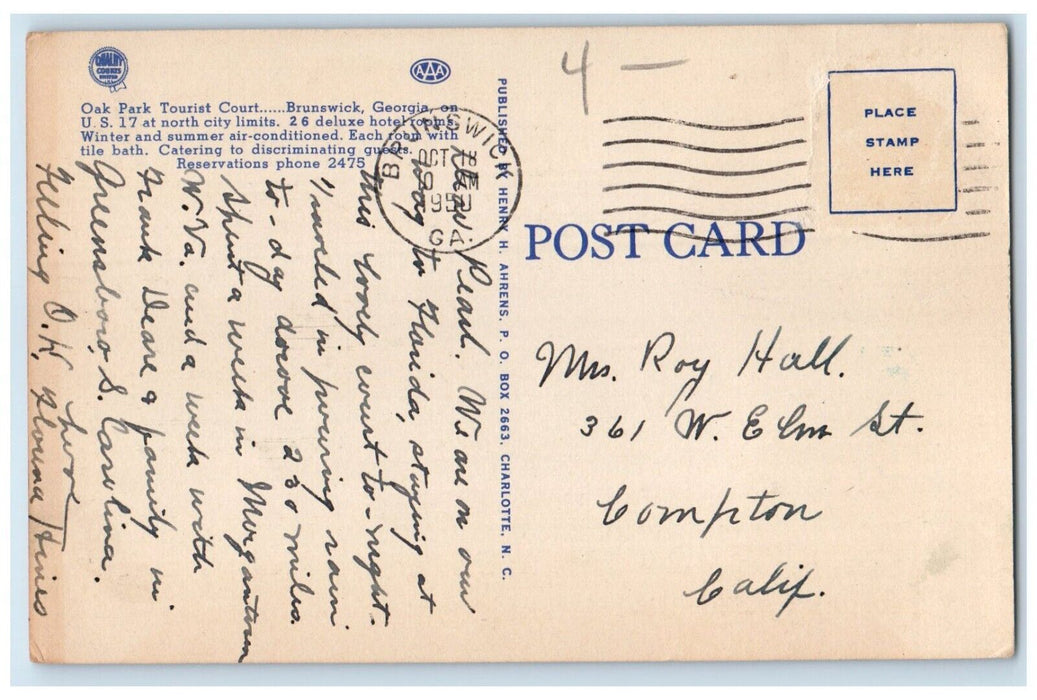 QUALITY
COURTS
UNITED
AAA
Oak Park Tourist Court......Brunswick, Georgia, on
U. S. 17 at north city limits. 26 deluxe hotel rooms.
Winter and summer air-conditioned. Each room with
tile bath. Catering to discriminating guests.
Reservations phone 2475
BRUNSWICK
OCT 18
GA.
4 —
Pearl. We are on our
way to Florida, staying at
this lovely court to-night.
Traveled in pouring rain
to-day drove 230 miles.
Spent a week in Morgantown
W. Va. and a week with
Frank Deane & family in
Greensboro, S. Carolina.
Feeling O.K. Love
Hines
PUBLISHED BY HENRY H. AHRENS, P. O. BOX 2663, CHARLOTTE, N. C.
POST CARD
PLACE
STAMP
HERE
Mrs. Roy Hall.
361 W. Elm St.
Compton
Calif.